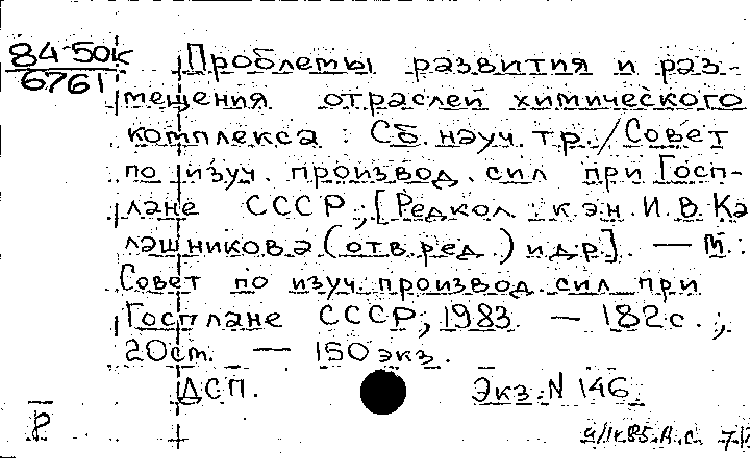 84-50к
6761
Проблемы развития и раз-
мещения отраслей химического
комплекса : Сб. науч. тр. / Совет
по изуч. производ. сил при Госп-
лане СССР ; [Редкол. : к. э. н. И. В. Ка
лашникова (отв. ред.) и др.] . — М. :
Совет по изуч. производ. сил при
Госплане СССР, 1983. — 182 с. ;
20 см. — 150 экз.
ДСП. Экз. N 146